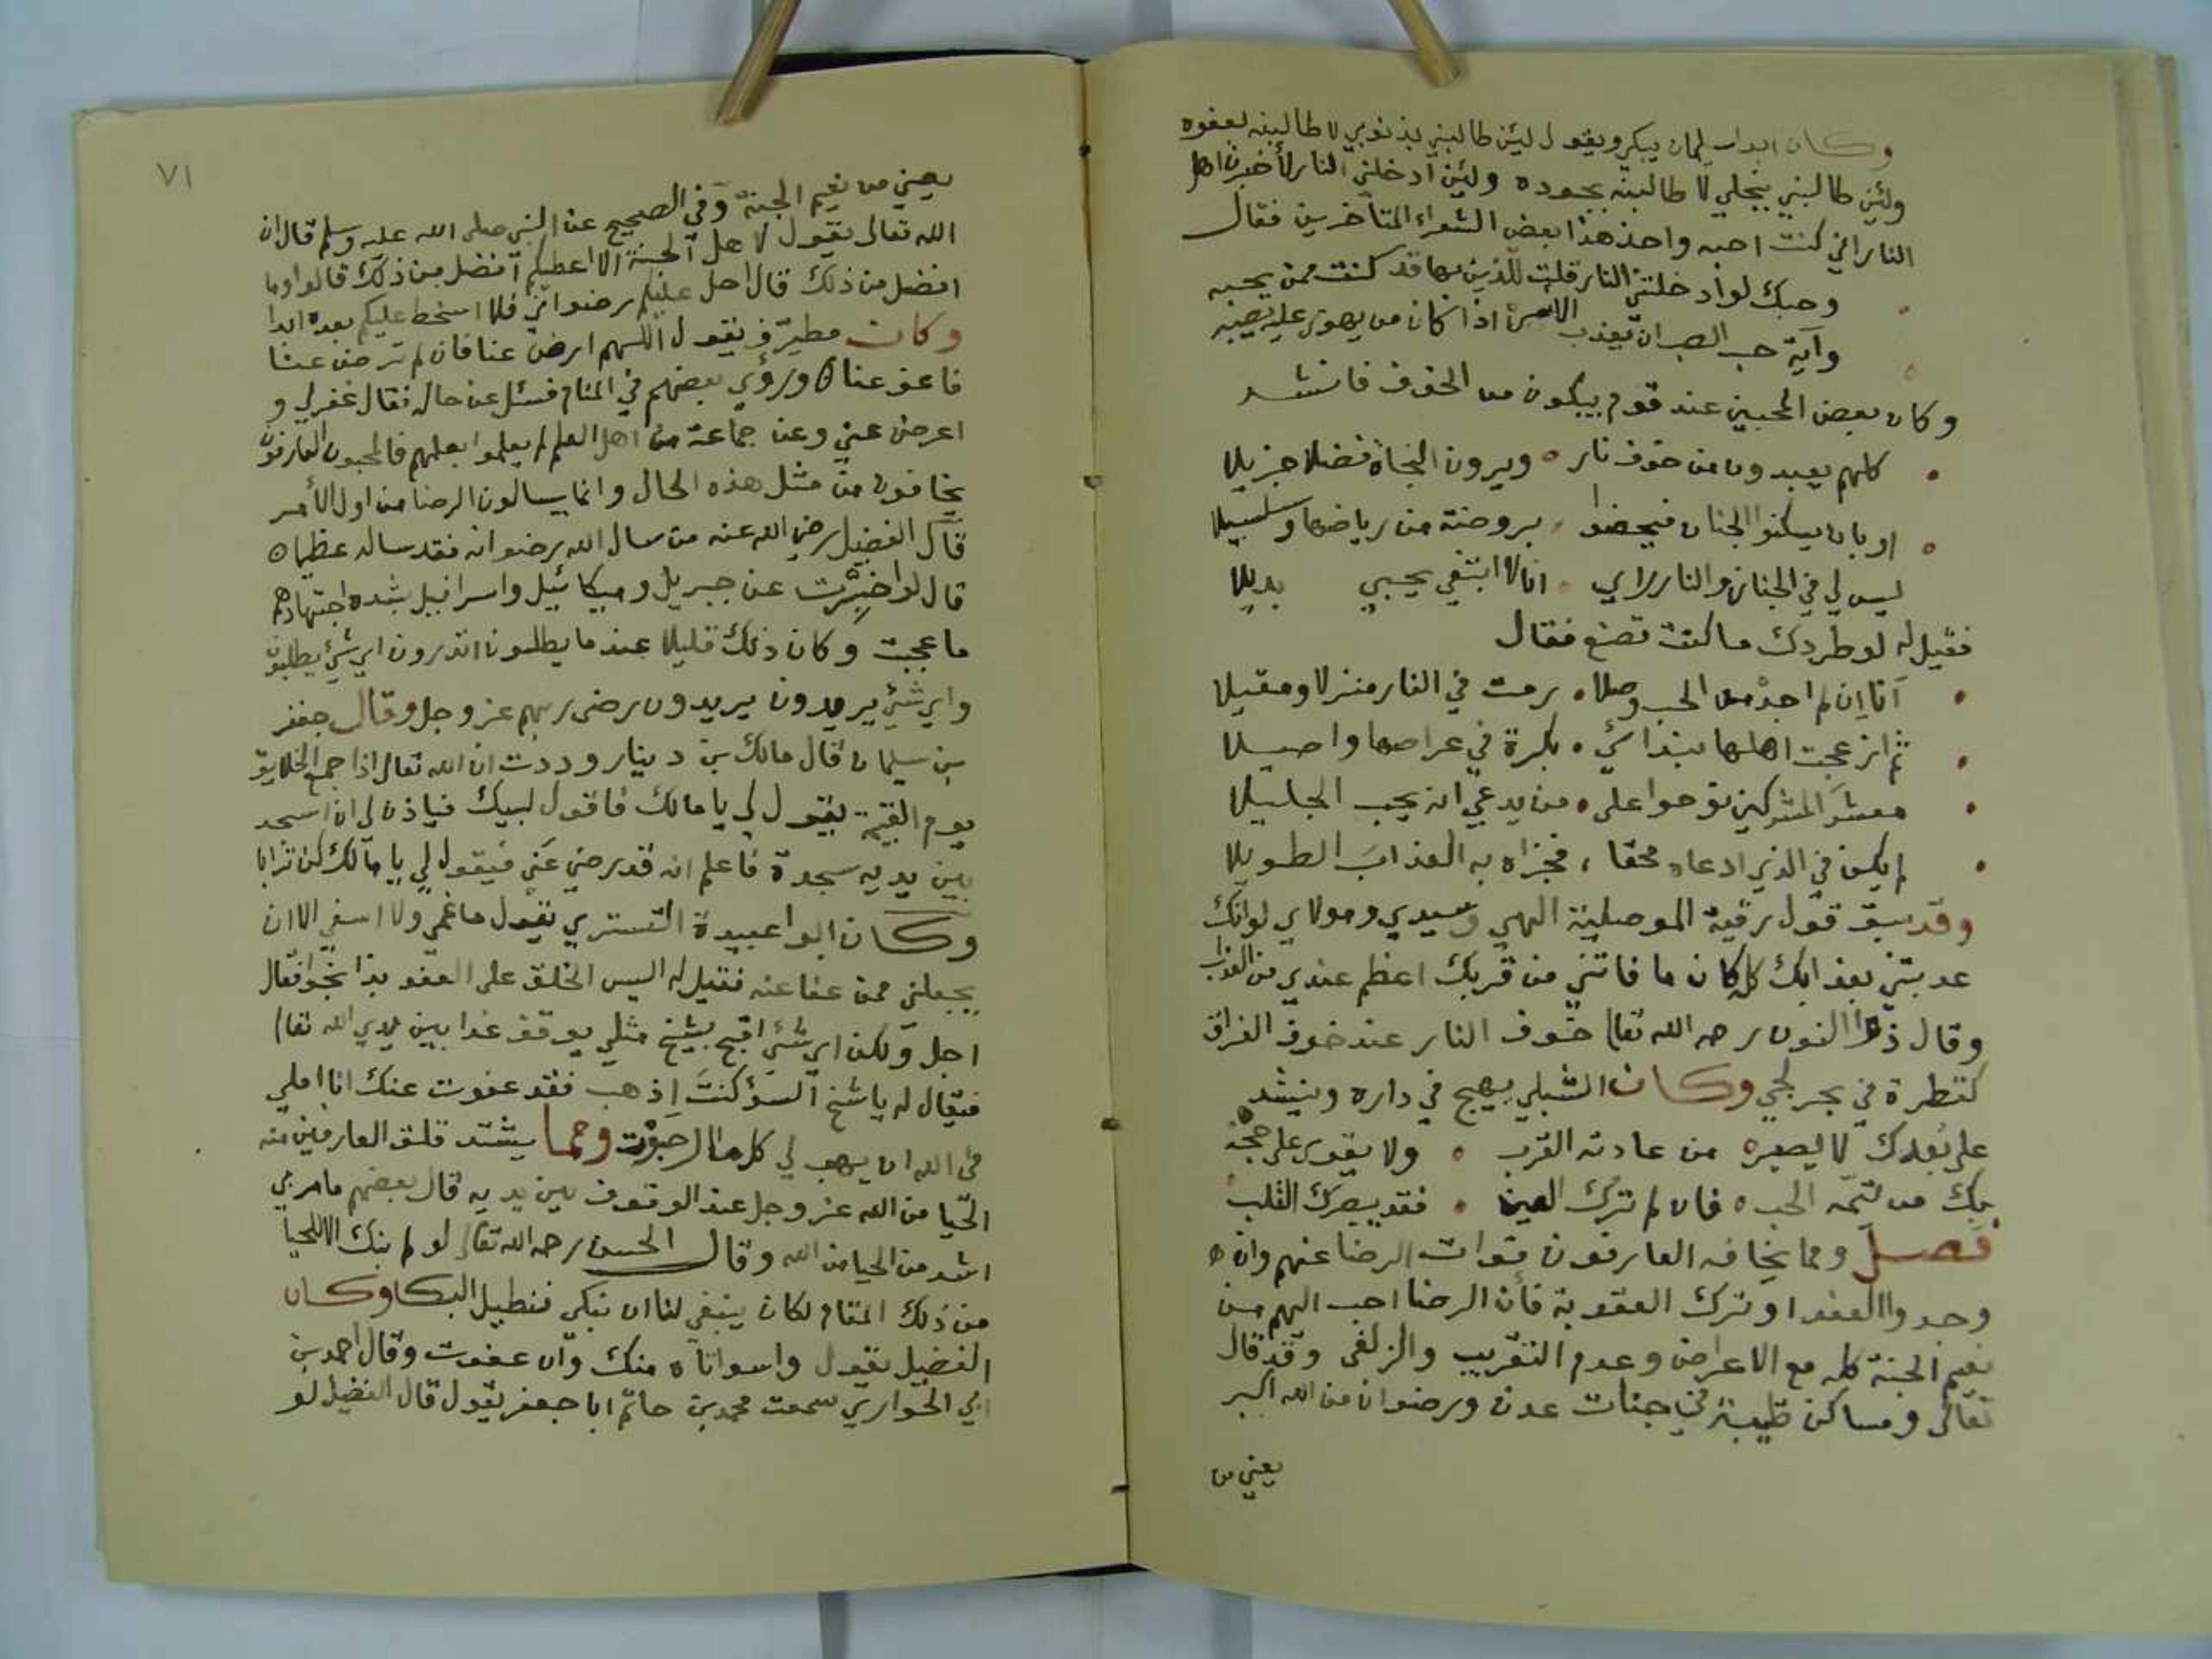 وكان ابو سليمان يبكي ويقول لئن طالبني بذنوبي لاطالبنه بعفوه
ولئن طالبني ببخلي لاطالبنه بجوده ولئن ادخلني النار لأخبرن اهل
النار اني كنت احبه واخذ هذا بعض الشعراء المتأخرين فقال
وحبك لو ادخلتني النار قلت للذين بها قد كنت ممن يحبه
وآية حب الصب ان يعذب الاسى اذا كان من يهوى عليه يصبه
وكان بعض المحبين عند قوم يبكون من الخوف فانشد
كلهم يعبدون من خوف نار ه ويرون النجاة فضلا جزيلا
او بان يسكنوا الجنان فيحضوا بروضة من رياضها وسلسبيلا
ليس لي في الجنان والنار راي انا لا ابتغي بحبي بديلا
فقيل له لو طردك ما كنت تصنع فقال
انا إن لم اجد من الحب وصلا رمت في النار منزلا ومقيلا
ثم ازعجت اهلها بندائي بكرة في عراصها واصيلا
معشر المشركين نوحوا على من يدعي انه يحب الجليلا
لم يكن في الذي ادعاه محقا ، فجزاه به العذاب الطويلا
وقد سبق قول رقية الموصلية الهي وسيدي ومولاي لو انك
عذبتني بعذابك كله كان ما فاتني من قربك اعظم عندي من العذاب
وقال ذو النون رحمه الله تعالى خوف النار عند خوف الفراق
كقطرة في بحر لجي وكان الشبلي يهيج في داره وينشد
على بعدك لا يصبر من عادته القرب ه ولا يقوى على حجبه
بك من تيمه الحب ه فان لم ترك العين فقد يبصرك القلب
فصل ومما يخافه العارفون فوات الرضا عنهم وان
وجدوا العفو او ترك العقوبة فأن الرضا احب اليهم من
نعيم الجنة كله مع الاعراض وعدم التقريب والزلفى وقد قال
تعالى ومساكن طيبة في جنات عدن ورضوان من الله اكبر
يعني من
٧١
يعني من نعيم الجنة وفي الصحيح عن النبي صلى الله عليه وسلم قال ان
الله تعالى يقول لاهل الجنة الا اعطيكم افضل من ذلك قالوا وما
افضل من ذلك قال احل عليكم رضواني فلا اسخط عليكم بعده ابدا
وكان مطرف يقول اللهم ارض عنا فان لم ترض عنا
فاعف عنا ه ورؤي بعضهم في المنام فسئل عن حاله فقال غفر لي و
اعرض عني وعن جماعة من اهل العلم لم يعلموا بعلمهم فالمحبون العارفون
يخافون من مثل هذه الحال وانما يسالون الرضا من اول الأمر
قال الفضيل رضي الله عنه من سال الله رضوانه فقد ساله عظيما ه
قال لو اخبرت عن جبريل وميكائيل واسرافيل بشدة اجتهادهم
ما عجبت وكان ذلك قليلا عند ما يطلبون اتدرون اي شيئ يطلبون
واي شيئ يريدون يريدون رضى ربهم عز وجل وقال جعفر
بن سليمان قال مالك بن دينار وددت ان الله تعالى اذا جمع الخلايق
يوم القيمة يقول لي يا مالك فاقول لبيك فياذن لي ان اسجد
بين يديه سجدة فاعلم انه قد رضي عني فيقول لي يا مالك كن ترابا
وكان ابو عبيدة التستري يقول ما غمي ولا اسفي الا ان
يجعلني ممن عفا عنه فقيل له اليس الخلق على العفو بذا بخوا فقال
اجل ولكن اي شيئ اقبح بشيخ مثلي يوقف غدا بين يدي الله تعا
فيقال له يا شيخ السؤ كنت اذهب فقد عفوت عنك انا املي
في الله ان يهب لي كل ما ارجوت ومما يشتد قلق العارفين منه
الحيا من الله عز وجل عند الوقوف بين يديه قال بعضهم ما مر بي
اشد من الحيا من الله وقال الحسن رحمه الله تعالى لو لم نبك الا للحيا
من ذلك المقام لكان ينبغي لنا ان نبكي فنطيل البكا وكان
الفضيل يقول واسوأتاه منك وان عفوت وقال احمد بن
ابي الحواري سمعت محمد بن حاتم ابا جعفر يقول قال الفضيل لو